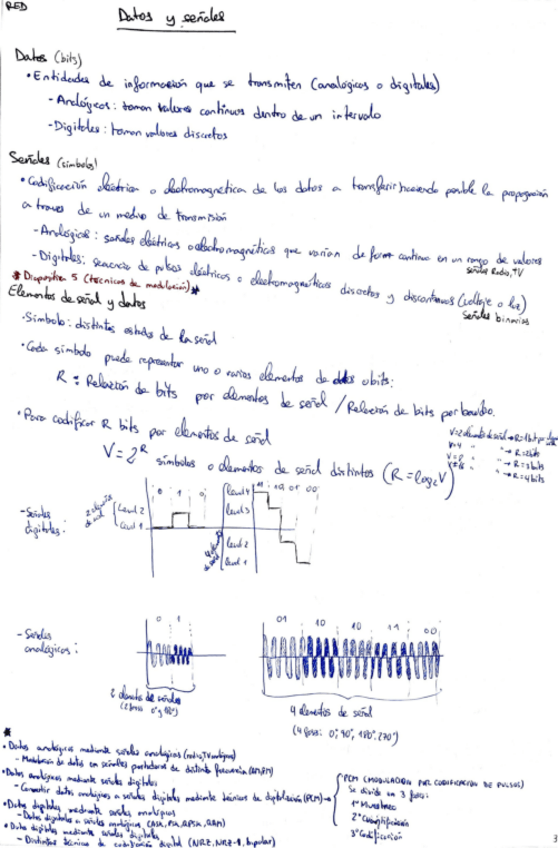 RED
Datos y señales
Datos (bits)
• Entidades de información que se transmiten (analógicos o digitales)
- Analógicos: toman valores continuos dentro de un intervalo
- Digitales: toman valores discretos
Señales (símbolos)
• Codificación eléctrica o electromagnética de los datos a transferir haciendo posible la propagación
a traves de un medio de transmisión
- Analógicas: señales eléctricas o electromagnéticas que varían de forma continua en un rango de valores
señales Radio, TV
- Digitales: secuencia de pulsos eléctricos o electromagnéticos discretos y discontinuos (voltaje o luz)
Señales binarias
* Diapositiva 5 (técnicas de modulación) *
Elementos de señal y datos
· Símbolo: distintos estados de la señal
· Cada símbolo puede representar uno o varios elementos de datos o bits:
R = Relación de bits por elementos de señal / Relación de bits por baudio.
• Para codificar R bits por elementos de señal
V = 2^R símbolos o elementos de señal distintos (R = log₂V)
V=2 elementos de señal → R=1 bit por
V=4 " → R=2 bits
V=8 " → R=3 bits
V=16 " → R=4 bits
- Señales digitales:
2 elementos de señal
Level 2
Level 1
0 1 0
4 elementos de señal
Level 4
Level 3
Level 2
Level 1
11 10 01 00
- Señales analógicas:
0 1
2 elementos de señales
(2 fases 0° y 180°)
01 10 10 11 00
4 elementos de señal
(4 fases: 0, 90°, 180°, 270°)
*
• Datos analógicos mediante señales analógicas (radio, TV analógica)
- Modulación de datos en señales portadoras de distinta frecuencia (AM, FM)
• Datos analógicos mediante señales digitales
- Convertir datos analógicos a señales digitales mediante técnicas de digitalización (PCM) →
PCM (MODULACIÓN POR CODIFICACIÓN DE PULSOS)
Se divide en 3 fases:
1º Muestreo
2º Cuantificación
3º Codificación
• Datos digitales mediante señales analógicas
- Datos digitales a señales analógicas (ASK, FSK, PSK, QAM)
• Datos digitales mediante señales digitales
- Distintas técnicas de codificación digital (NRZ, NRZ-I, bipolar)
3